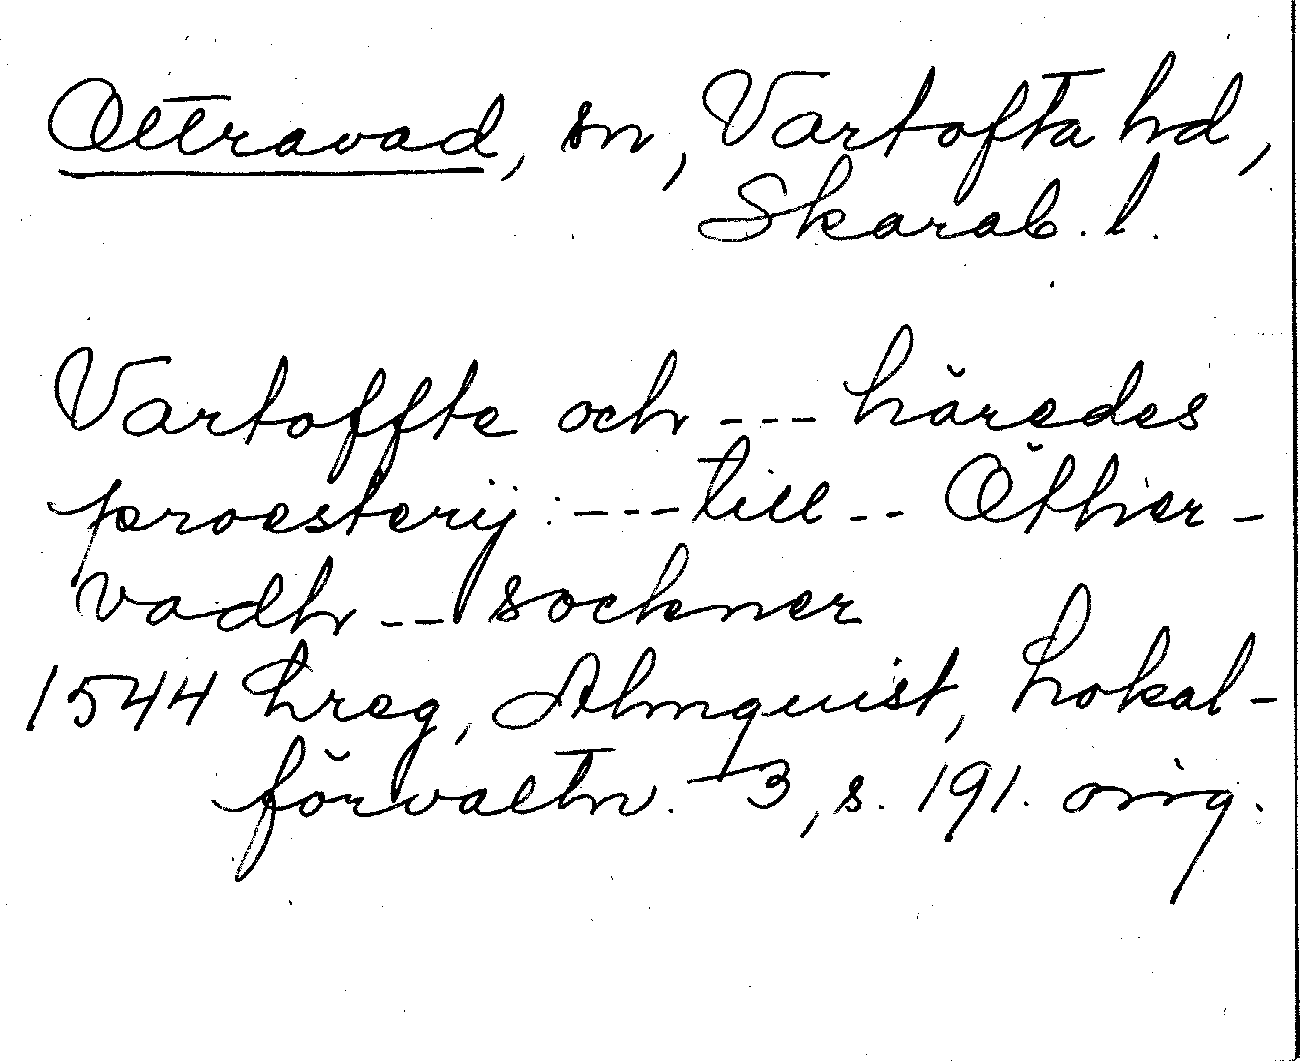 Ottravad, sn, Vartofta hd,
Skarab. l.
Vartoffte och --- häredes
proesterij: --- till -- Öther-
vadh -- sockner
1544 hreg, Almquist, Lokal-
förvaltn. 3, s. 191. orig.